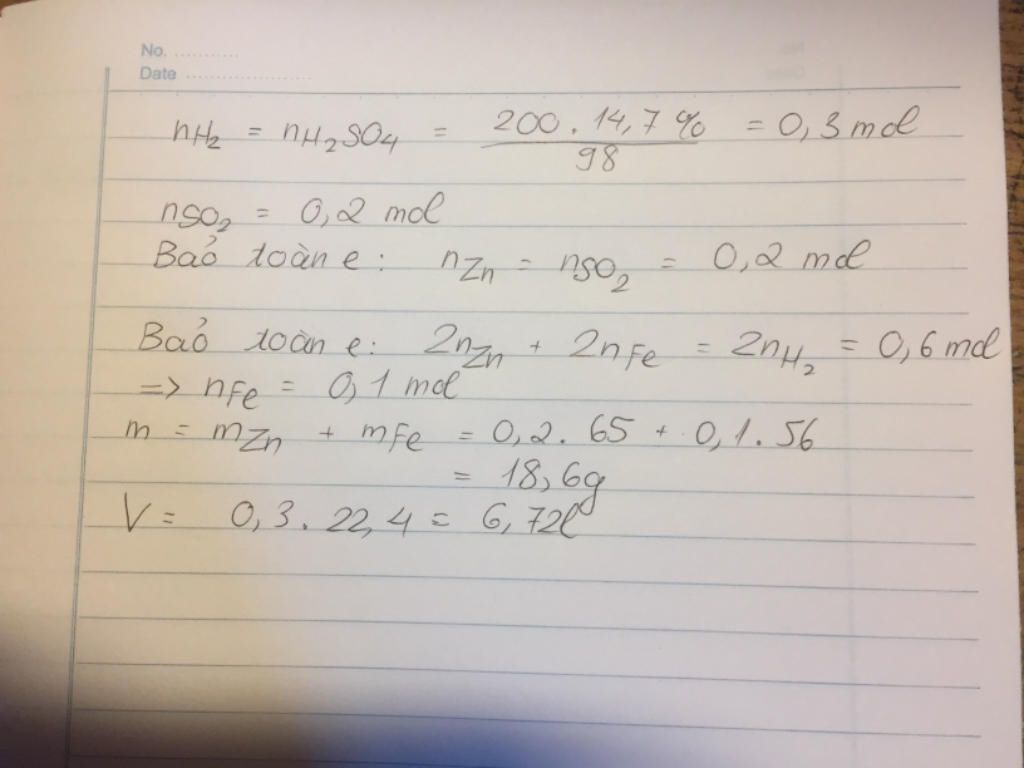 No. ............
Date ......................
nH₂ = nH₂SO₄ = 200 . 14,7 % / 98 = 0,3 mol
nSO₂ = 0,2 mol
Bảo toàn e: nZn = nSO₂ = 0,2 mol
Bảo toàn e: 2nZn + 2nFe = 2nH₂ = 0,6 mol
=> nFe = 0,1 mol
m = mZn + mFe = 0,2 . 65 + 0,1 . 56
= 18,6g
V = 0,3 . 22,4 = 6,72l